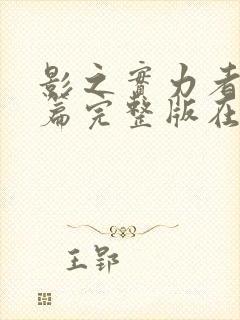 影之實力者
篇完整版在
王郢